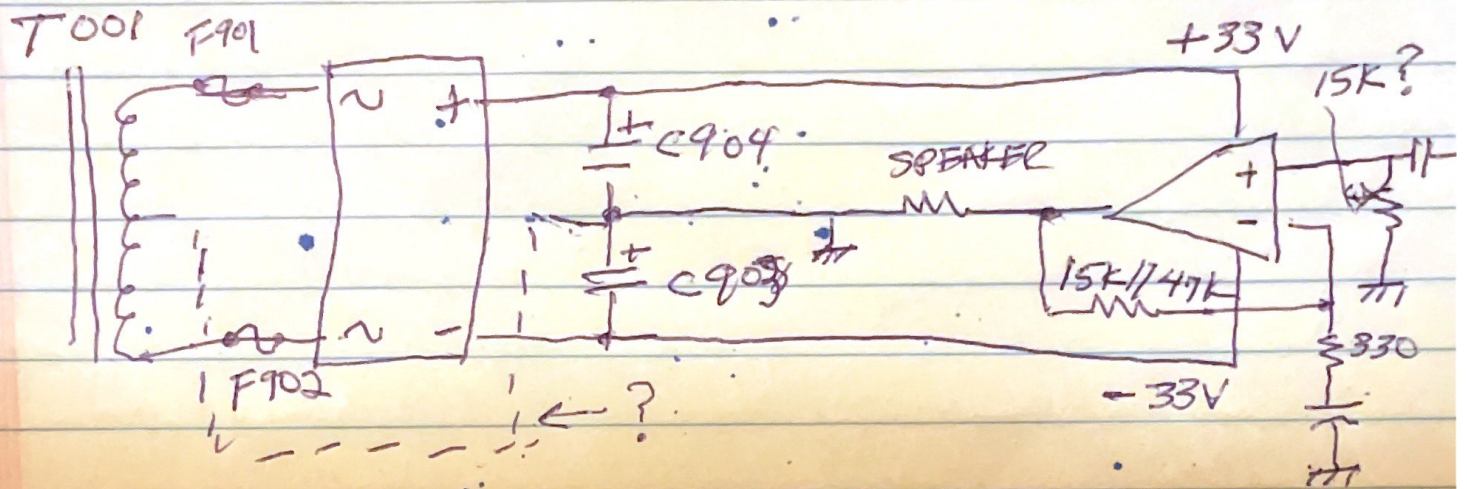 T001
F901
+33V
15K?
~ +
+
C904
SPEAKER
+
-
+
15K//47K
~ -
330
F902
-33V
?